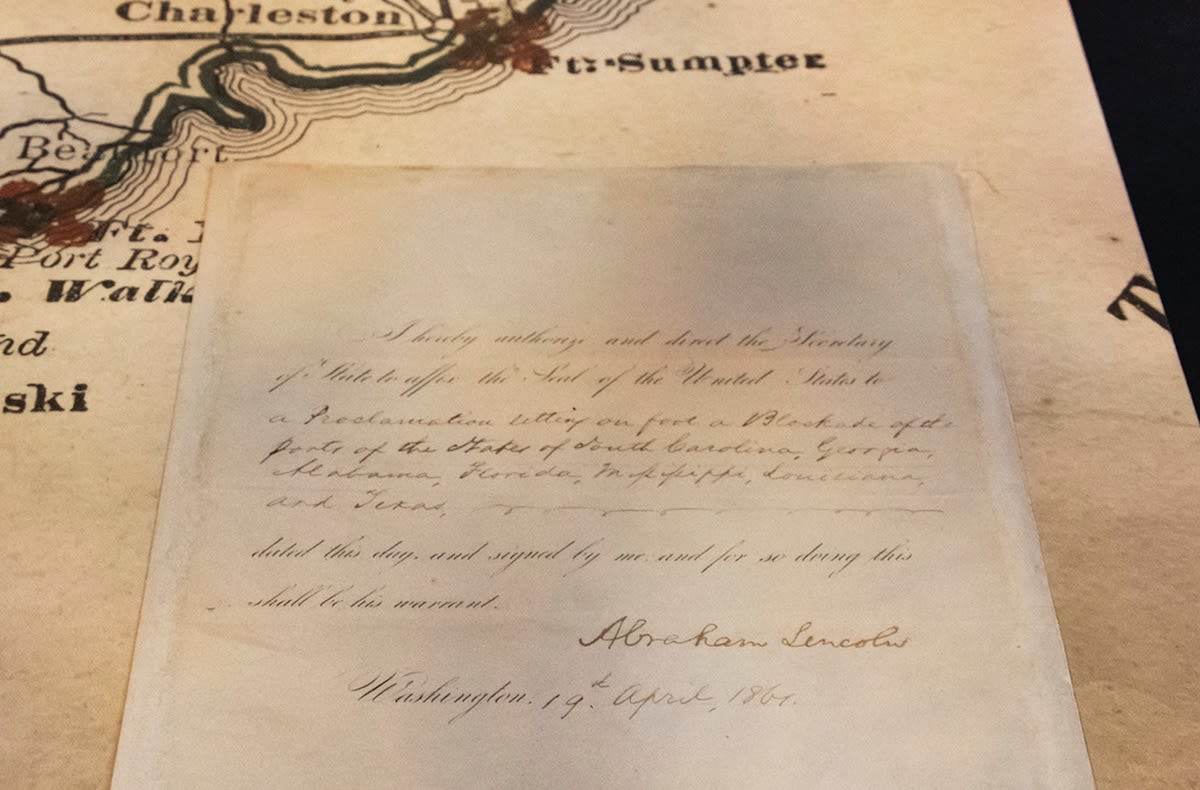 Charleston
Ft: Sumpter
Beaufort
Ft.
Port Roy
. Walk
nd
ski
T
I hereby authorize and direct the Secretary
of State to affix the Seal of the United States to
a Proclamation setting on foot a Blockade of the
ports of the States of South Carolina, Georgia,
Alabama, Florida, Mississippi, Louisiana,
and Texas,
dated this day, and signed by me and for so doing this
shall be his warrant.
Abraham Lincoln
Washington, 19th April, 1861.